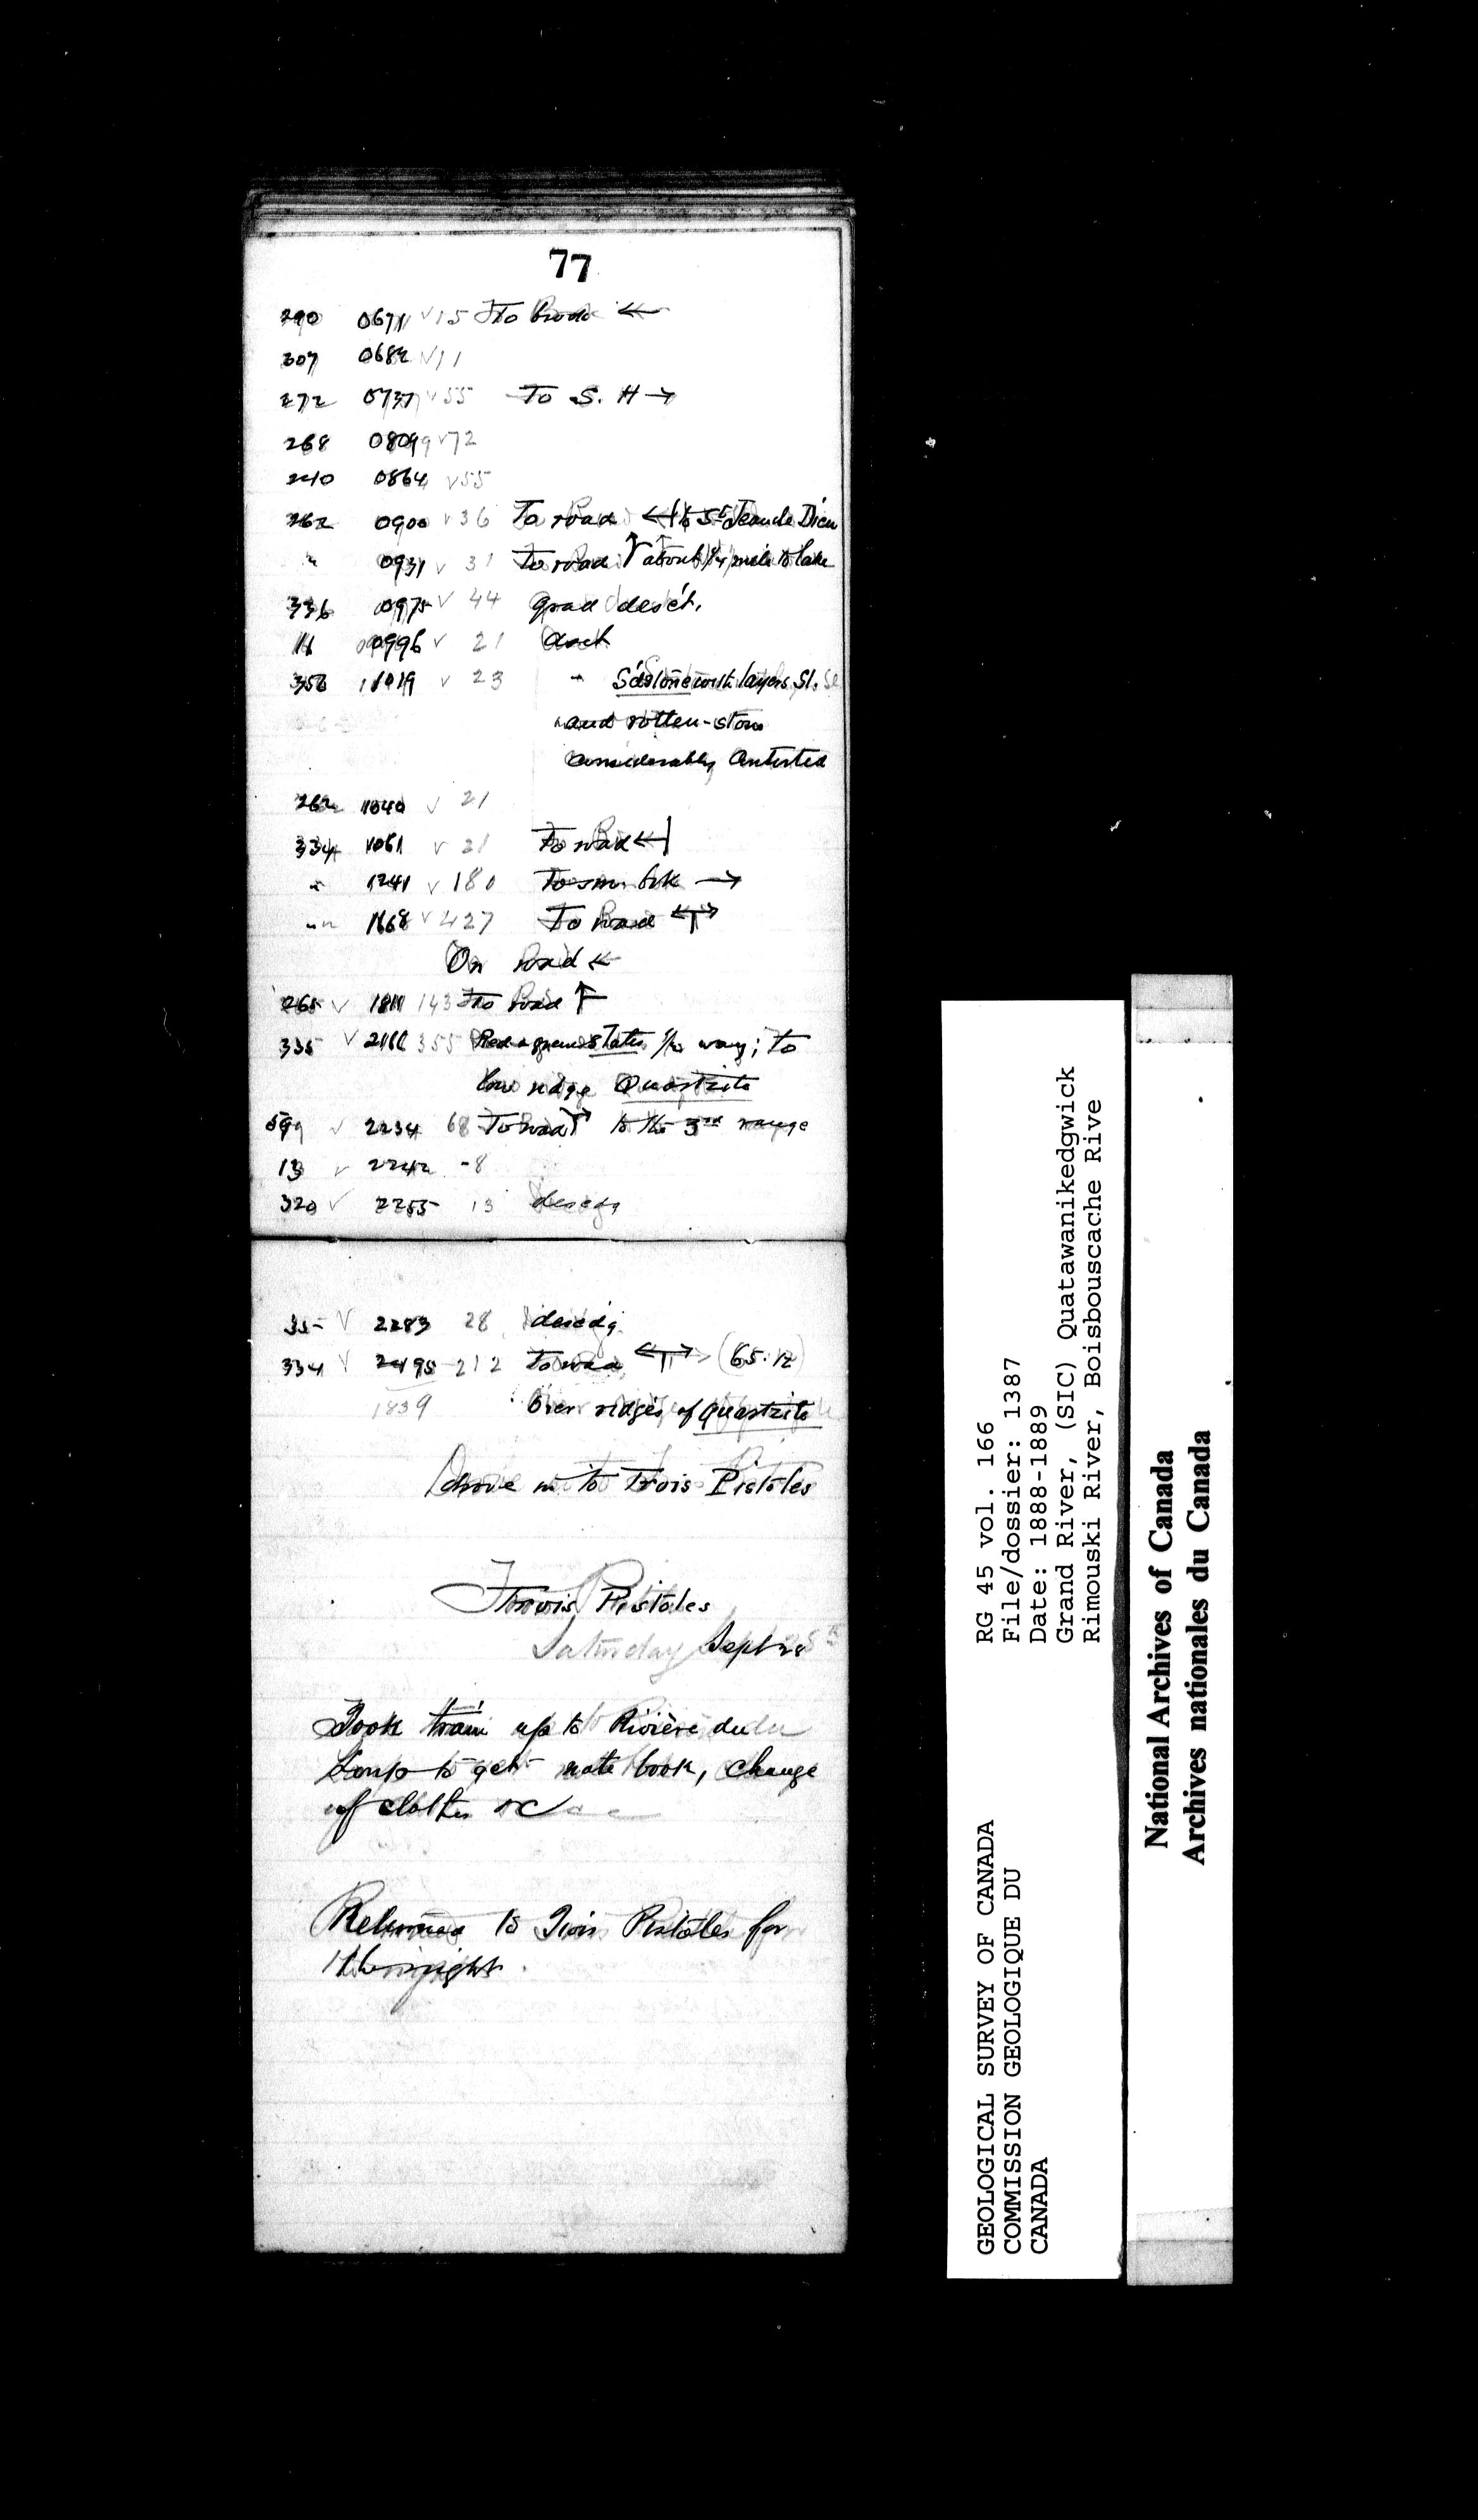 77
290 0671 √ 15 To brook ←
307 0682 √ 11
272 0737 √ 55 To S. H →
268 0809 √ 72
240 0864 √ 55
262 0900 √ 36 To road ← to St Jean de Dieu
" 0931 √ 31 To road ↑ about 1/4 mile to lake
336 0975 √ 44 grad desct.
0996 √ 21
356 1019 √ 23 " S'dstone with layers Sl.
and rotten-stone
considerably contorted
262 1040 √ 21
334 1061 √ 21 To road ←
" 1241 √ 180 To sm. brk →
" 1668 √ 427 To road ↔
On road ←
265 √ 1811 143 To road ↑
335 √ 2166 355 Red & green slates 1/2 way; to
low ridge Quartzite
√ 2234 68 To road ↱ to the 3rd range
13 √ 2242 -8
320 √ 2255 13 descdg
√ 2283 28 descdg.
334 √ 2495 212 To road ↔ (65.12)
1839 Over ridges of quartzite
Drove in to Trois Pistoles
Trois Pistoles
Saturday Sept 28
Took train up to Rivière du
Loup to get note book, change
of clothes &c
Returned to Trois Pistoles for
the night.
RG 45 vol. 166
File/dossier: 1387
Date: 1888-1889
Grand River, (SIC) Quatawanikedgwick
Rimouski River, Boisbouscache Rive
GEOLOGICAL SURVEY OF CANADA
COMMISSION GEOLOGIQUE DU
CANADA
National Archives of Canada
Archives nationales du Canada